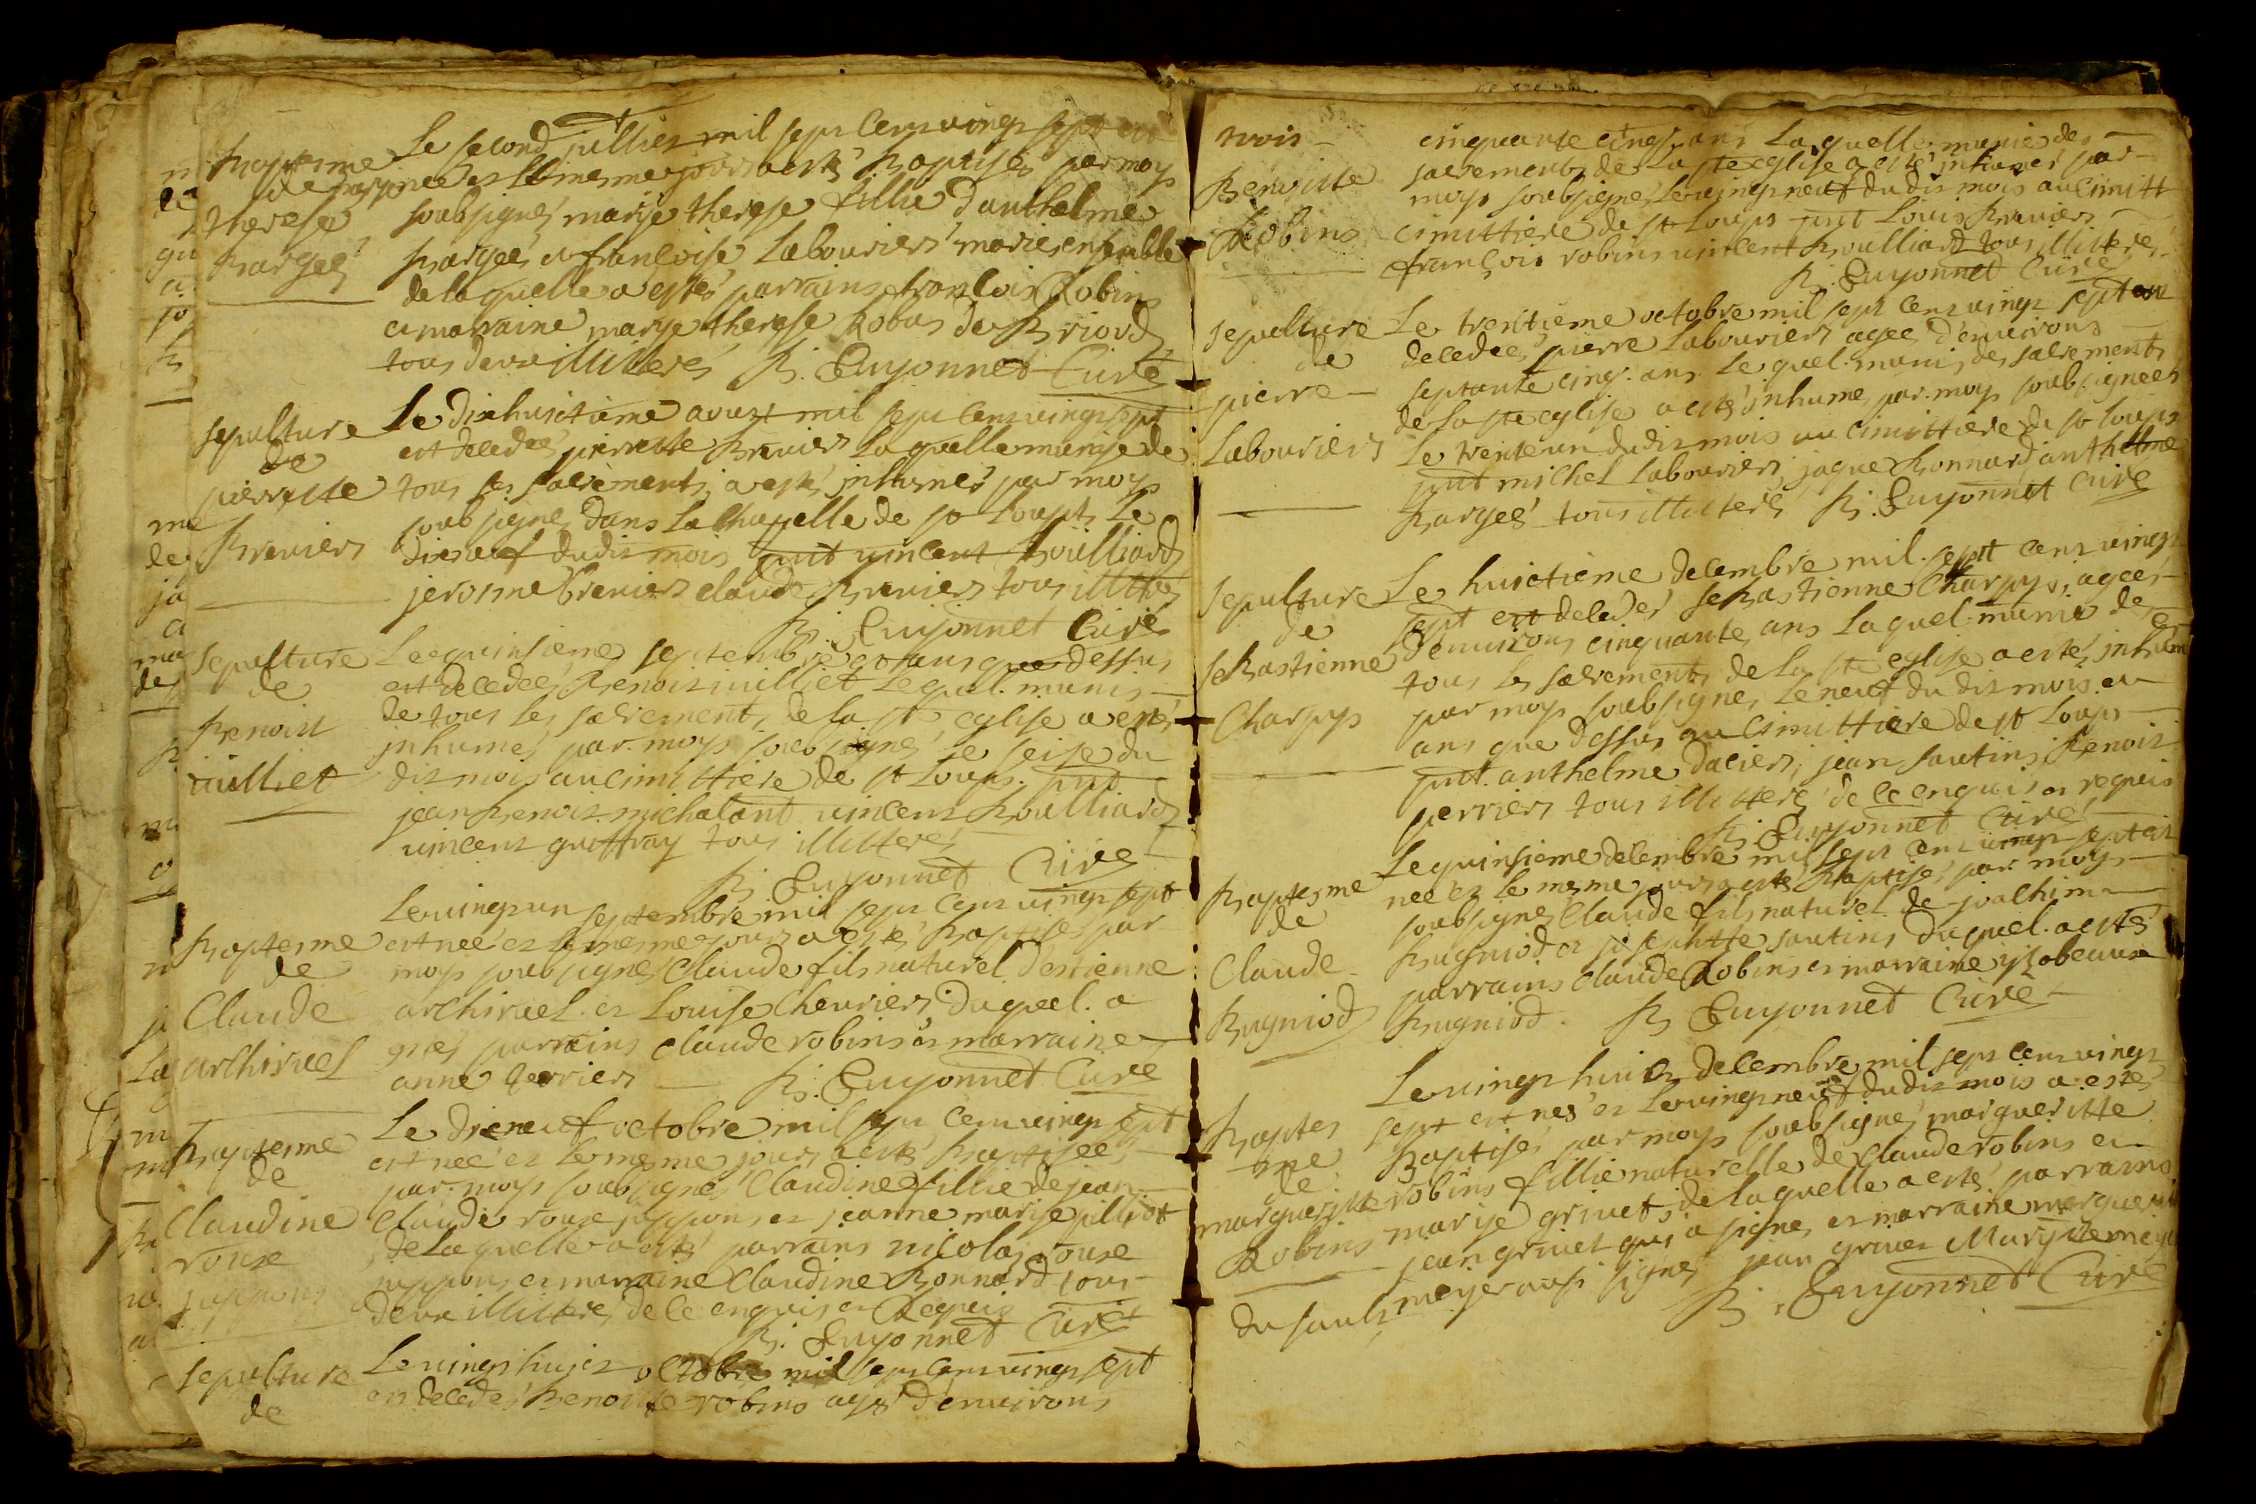 Baptesme
de marye
therese
Bargeé
Le second juillier mil sept cent vingt sept est
neé et le mesme jour a esté Baptisée par moy
soubsigné marye therese fillie d'anthelme
Bargeé et francoise Labouriers mariés ensemble
de laquelle a estés parrains francois Robins
et marraine marye therese Robas de Briord
tous deux illitteres B: Guyonnet Curé
sepulture
de
pierrette
Breviers
Le dixhuictieme aoust mil sept cent vingt sept
est decedeé pierrette Brevier Laquelle munye de
tous les sacrements a esté inhumeé par moy
soubsigné dans la chapelle de st Loupt Le
dixneuf dudit mois pnt vincent Boulliard
jerosme breviers claude Breviers tous illitteres
B: Guyonnet Curé
sepulture
de
Benoist
vulliet
Le quinsieme septembre et ans que dessus
est decedeé Benoist vulliet Lequel munis
de tous les sacrements de la ste eglise a esté
inhumé par moy soubsigné le seise du
dit mois au cimittiere de st Loups pnt
jean Benoit michalant vincent Boulliard
vincent guiffray tous illitteres
B: Guyonnet Curé
Baptesme
de
Claude
archirel
Le vingt un septembre mil sept cent vingt sept
est neé et le mesme jour a esté Baptisé par
moy soubsigné Claude fils naturel d'estienne
archirel et Louise Chevriers duquel a
estés parrains claude robins et marraine
anne terriers B: Guyonnet Curé
Baptesme
de
Claudine
rouse
juppons
Le dixneuf octobre mil sept cent vingt sept
est neé et le mesme jour a esté Baptiseé
par moy soubsigné Claudine fillie de jean
Claude rouse juppons et jeanne marye
de laquelle a estés parrains nicolas rouse
juppons et marraine Claudine Bonnard tous
deux illitteres de ce enquis et Requis
B: Guyonnet Curé
sepulture
de
Le vingt huict octobre mil sept cent vingt sept
est decedeé Benoiste robins ageé d'environs
Benoiste
Robins
cinquante cinq ans Laquelle munie des
sacrements de la ste eglise a esté inhumeé par
moy soubsigné Le vingt neuf du dit mois au cimitt
cimittiere de st Loups pnt Louis Breviers
francois robins vincent Boulliard tous illitteres
B: Guyonnet Curé
sepulture
de
pierre
Labouriers
Le trentieme octobre mil sept cent vingt sept est
decedeé pierre Labouriers ageé d'environs
septante cinq ans Lequel munis des sacrements
de la ste eglise a esté inhumé par moy soubsigneé
Le trente un dudit mois au cimittiere de st Loups
pnt michel Labouriers jaque Bonnard anthelme
Bargeé tous illitteres B: Guyonnet Curé
sepulture
de
seBastienne
Charpy
Le huictieme decembre mil sept cent vingt
sept est decedeé seBastienne Charpy ageé
d'environs cinquante ans Laquel munie de
tous les sacrements de la ste eglise a esté inhumé
par moy soubsigné Le neuf du dit mois et
ans que dessus au cimittiere de st Loups
pnt anthelme daciers jean sautins Benoit
perriers tous illitteres de ce enquis et requis
B: Guyonnet Curé
Baptesme
de
Claude
Bugniod
Le quinsieme decembre mil sept cent vingt sept est
neé et le mesme jour a esté Baptisé par moy
soubsigné Claude fils naturel de joachim
Bugniod et josephtte sautins duquel a estés
parrains claude Robins et marraine ysabeaux
Bugniod B: Guyonnet Curé
Baptes
me
de
margueritte
Robins
du sault
Le vingt huict decembre mil sept cent vingt
sept est neé et Le vingt neuf dudit mois a esté
Baptisé par moy soubsigné margueritte
robins fillie naturelle de Claude robins et
marye grivet de laquelle a esté parrains
jean grivet qui a signé et marraine margueritte
meyer ausi signé jean grivet
B: Guyonnet Curé